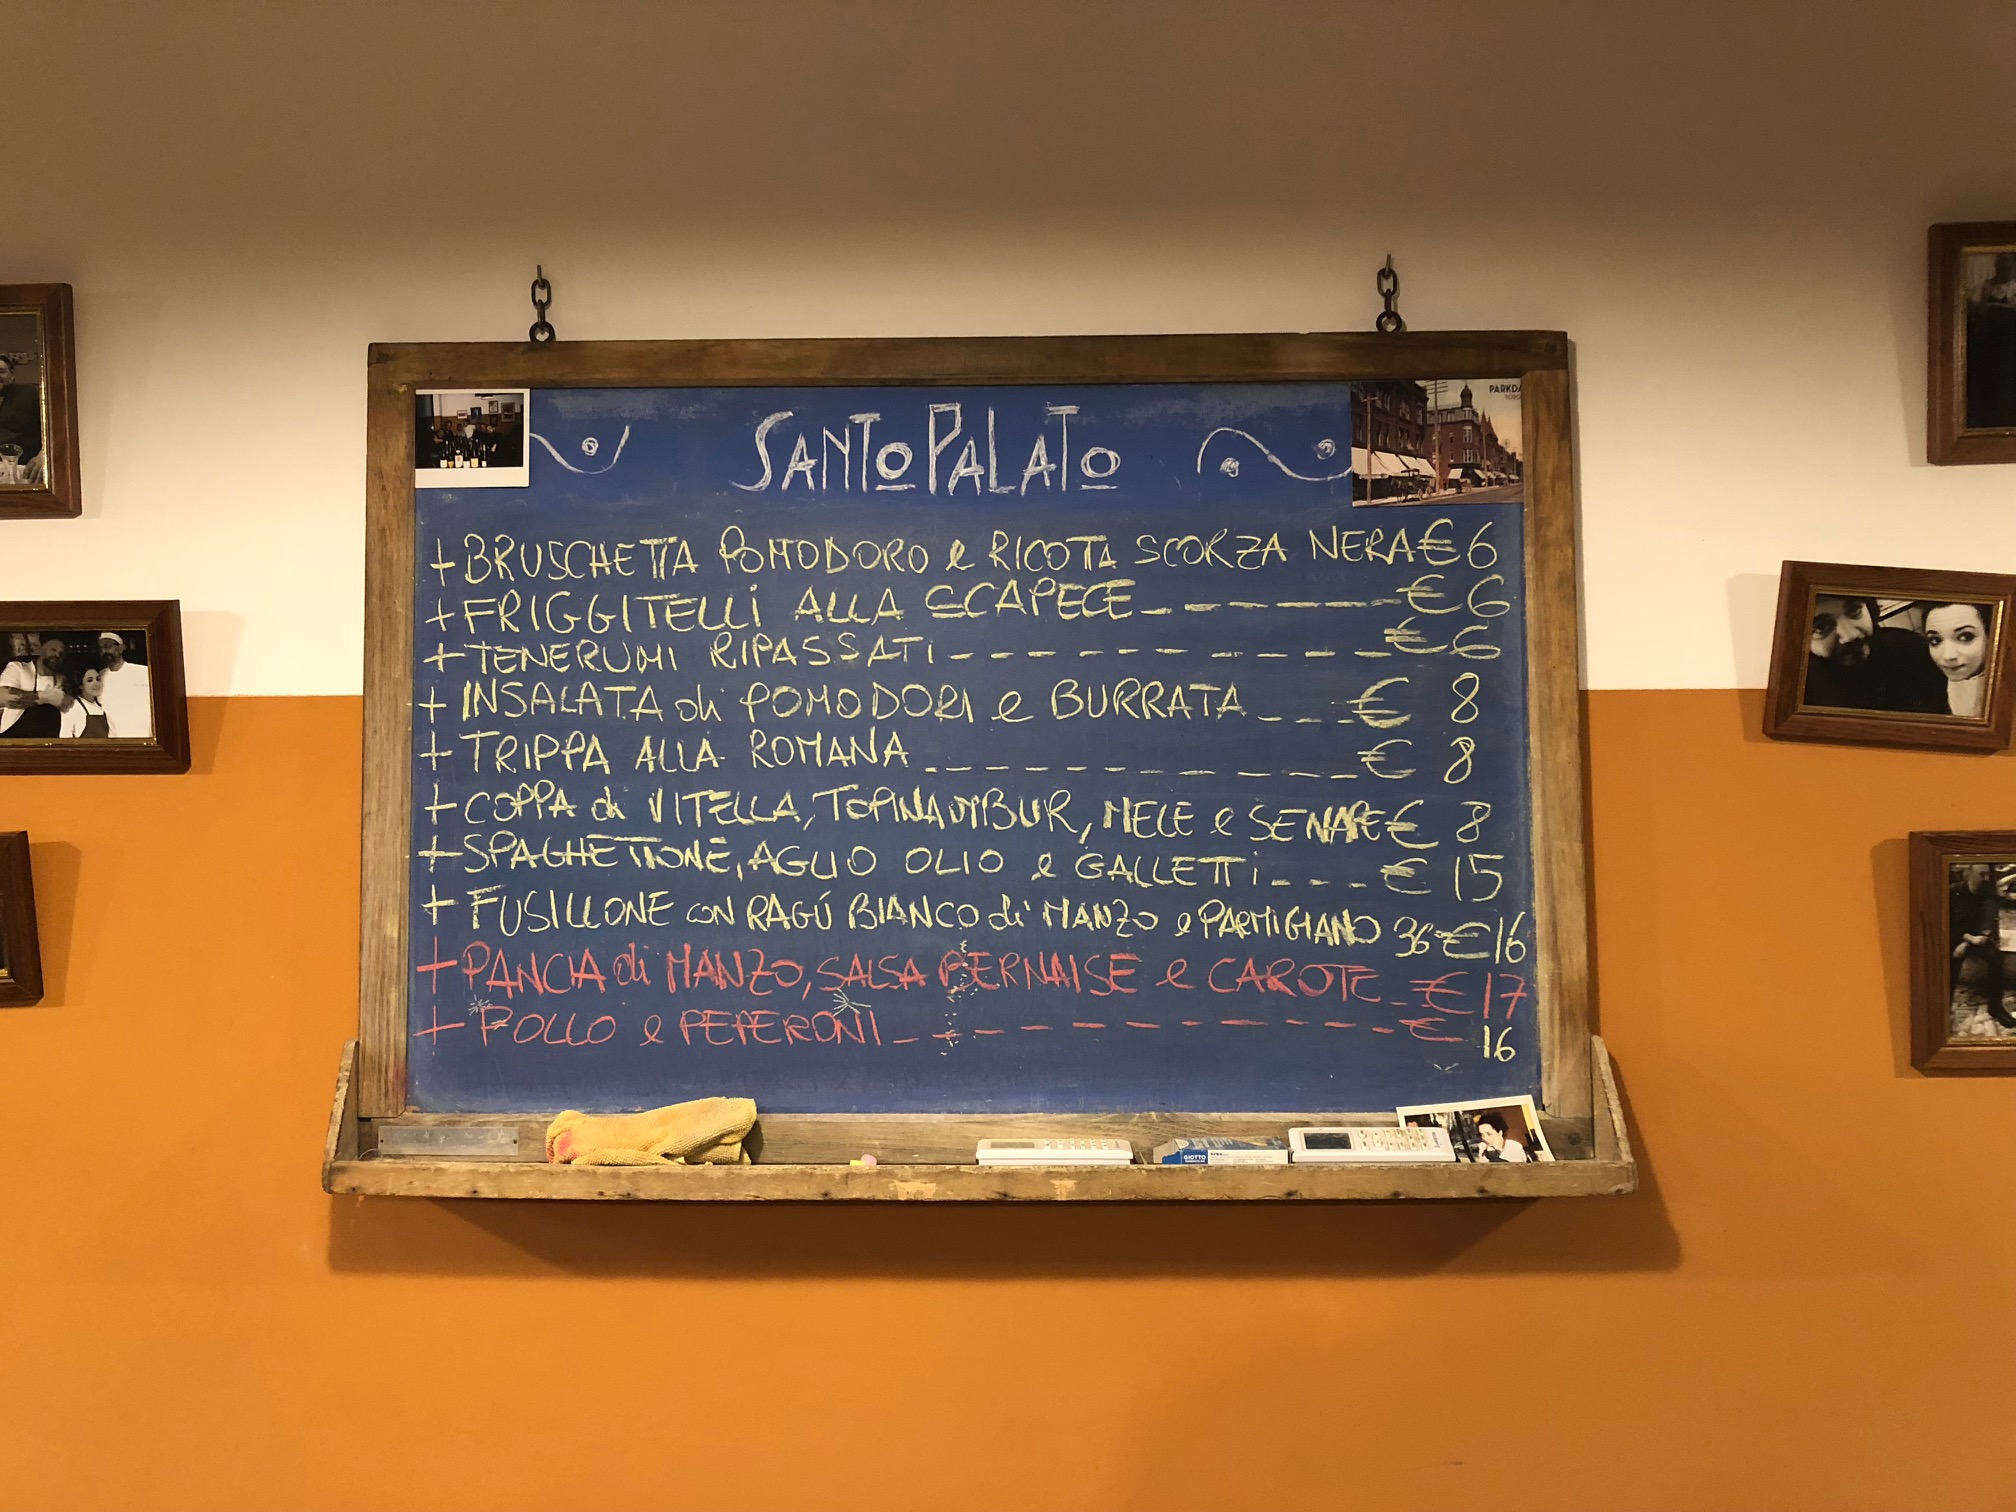 PARKDA
TORO
SANTO PALATO
+ BRUSCHETTA POMODORO e RICOTTA SCORZA NERA € 6
+ FRIGGITELLI ALLA SCAPECE - - - - - - - - € 6
+ TENERUMI RIPASSATI - - - - - - - - - - - € 6
+ INSALATA di POMODORI e BURRATA - - - € 8
+ TRIPPA ALLA ROMANA - - - - - - - - - - - € 8
+ COPPA di VITELLA, TOPINAMBUR, MELE e SENAPE € 8
+ SPAGHETTONE, AGLIO OLIO e GALLETTI - - - € 15
+ FUSILLONE CON RAGÚ BIANCO di MANZO e PARMIGIANO 36 € 16
+ PANCIA di MANZO, SALSA BERNAISE e CAROTE - € 17
+ POLLO e PEPERONI - - - - - - - - - - - - € 16
GIOTTO